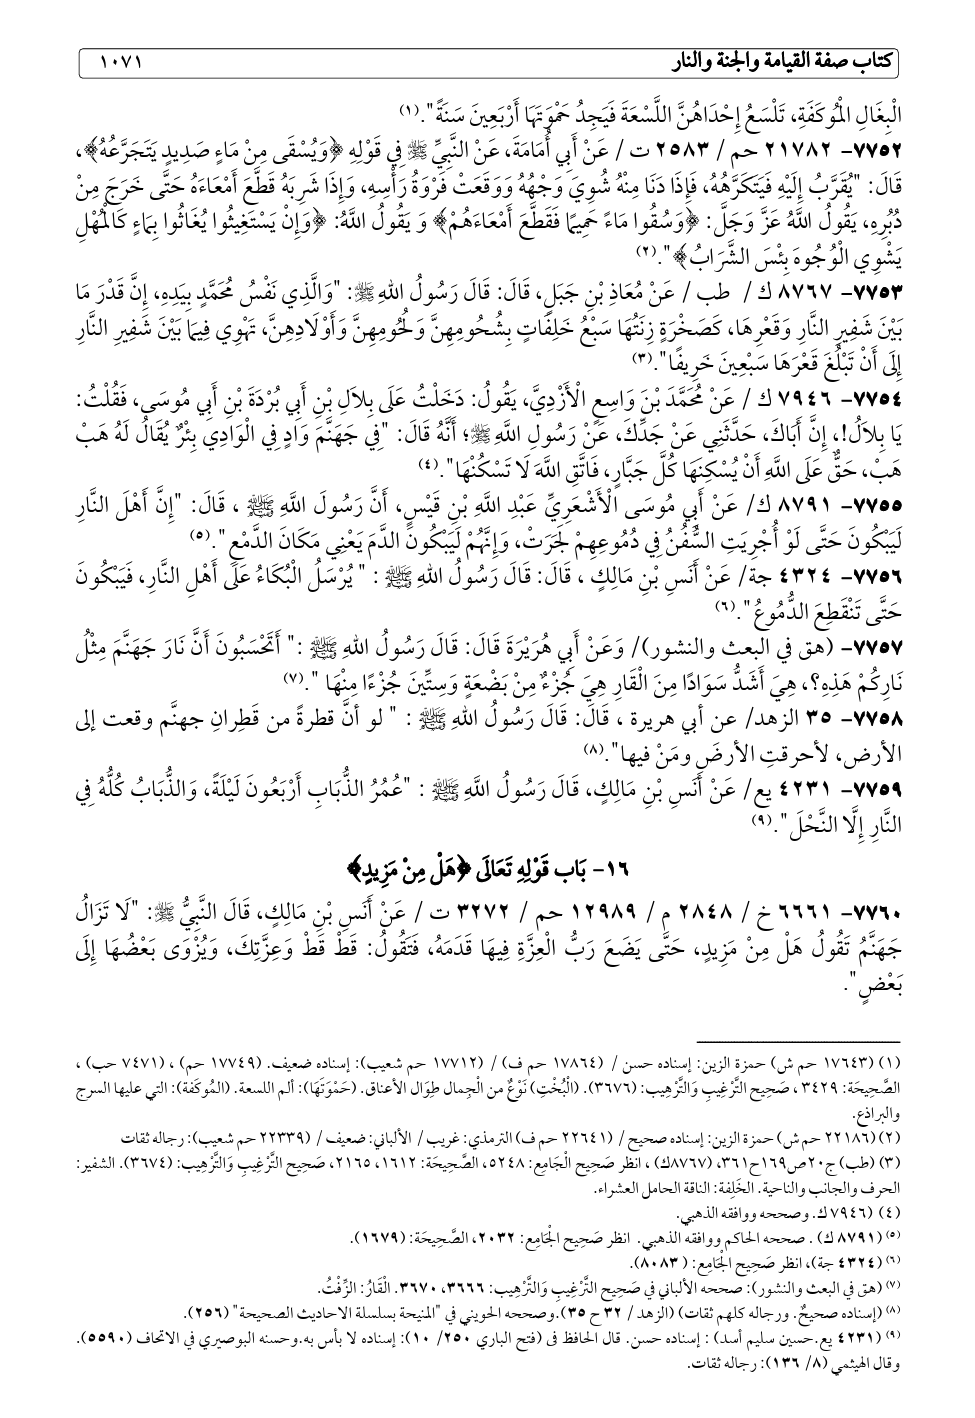 كتاب صفة القيامة والجنة والنار ١٠٧١
الْبِغَالِ الْمُوكَفَةِ، تَلْسَعُ إِحْدَاهُنَّ اللَّسْعَةَ فَيَجِدُ حَمْوَتَهَا أَرْبَعِينَ سَنَةً". (١)
٧٧٥٢- ٢١٧٨٢ حم / ٢٥٨٣ ت / عَنْ أَبِي أُمَامَةَ، عَنْ النَّبِيِّ ﷺ فِي قَوْلِهِ ﴿وَيُسْقَى مِنْ مَاءٍ صَدِيدٍ يَتَجَرَّعُهُ﴾،
قَالَ: "يُقَرَّبُ إِلَيْهِ فَيَتَكَرَّهُهُ، فَإِذَا دَنَا مِنْهُ شُوِيَ وَجْهُهُ وَوَقَعَتْ فَرْوَةُ رَأْسِهِ، وَإِذَا شَرِبَهُ قَطَّعَ أَمْعَاءَهُ حَتَّى خَرَجَ مِنْ
دُبُرِهِ، يَقُولُ اللَّهُ عَزَّ وَجَلَّ: ﴿وَسُقُوا مَاءً حَمِيمًا فَقَطَّعَ أَمْعَاءَهُمْ﴾ وَ يَقُولُ اللَّهُ: ﴿وَإِنْ يَسْتَغِيثُوا يُغَاثُوا بِمَاءٍ كَالْمُهْلِ
يَشْوِي الْوُجُوهَ بِئْسَ الشَّرَابُ﴾". (٢)
٧٧٥٣- ٨٧٦٧ ك / طب / عَنْ مُعَاذِ بْنِ جَبَلٍ، قَالَ: قَالَ رَسُولُ اللهِ ﷺ: "وَالَّذِي نَفْسُ مُحَمَّدٍ بِيَدِهِ، إِنَّ قَدْرَ مَا
بَيْنَ شَفِيرِ النَّارِ وَقَعْرِهَا، كَصَخْرَةٍ زِنَتُهَا سَبْعُ خَلِفَاتٍ بِشُحُومِهِنَّ وَلُحُومِهِنَّ وَأَوْلَادِهِنَّ، تَهْوِي فِيمَا بَيْنَ شَفِيرِ النَّارِ
إِلَى أَنْ تَبْلُغَ قَعْرَهَا سَبْعِينَ خَرِيفًا". (٣)
٧٧٥٤- ٧٩٤٦ ك / عَنْ مُحَمَّدَ بْنَ وَاسِعٍ الْأَزْدِيَّ، يَقُولُ: دَخَلْتُ عَلَى بِلَالِ بْنِ أَبِي بُرْدَةَ بْنِ أَبِي مُوسَى، فَقُلْتُ:
يَا بِلَالُ!، إِنَّ أَبَاكَ، حَدَّثَنِي عَنْ جَدِّكَ، عَنْ رَسُولِ اللَّهِ ﷺ؛ أَنَّهُ قَالَ: "فِي جَهَنَّمَ وَادٍ فِي الْوَادِي بِئْرٌ يُقَالُ لَهُ هَبْ
هَبْ، حَقٌّ عَلَى اللَّهِ أَنْ يُسْكِنَهَا كُلَّ جَبَّارٍ، فَاتَّقِ اللَّهَ لَا تَسْكُنْهَا". (٤)
٧٧٥٥- ٨٧٩١ ك/ عَنْ أَبِي مُوسَى الْأَشْعَرِيِّ عَبْدِ اللَّهِ بْنِ قَيْسٍ، أَنَّ رَسُولَ اللَّهِ ﷺ ، قَالَ: "إِنَّ أَهْلَ النَّارِ
لَيَبْكُونَ حَتَّى لَوْ أُجْرِيَتِ السُّفُنُ فِي دُمُوعِهِمْ لَجَرَتْ، وَإِنَّهُمْ لَيَبْكُونَ الدَّمَ يَعْنِي مَكَانَ الدَّمْعِ". (٥)
٧٧٥٦- ٤٣٢٤ جة/ عَنْ أَنَسِ بْنِ مَالِكٍ ، قَالَ: قَالَ رَسُولُ اللهِ ﷺ : " يُرْسَلُ الْبُكَاءُ عَلَى أَهْلِ النَّارِ، فَيَبْكُونَ
حَتَّى تَنْقَطِعَ الدُّمُوعُ". (٦)
٧٧٥٧- (هق في البعث والنشور)/ وَعَنْ أَبِي هُرَيْرَةَ قَالَ: قَالَ رَسُولُ اللهِ ﷺ :" أَتَحْسَبُونَ أَنَّ نَارَ جَهَنَّمَ مِثْلُ
نَارِكُمْ هَذِهِ؟، هِيَ أَشَدُّ سَوَادًا مِنَ الْقَارِ هِيَ جُزْءٌ مِنْ بَضْعَةٍ وَسِتِّينَ جُزْءًا مِنْهَا ". (٧)
٧٧٥٨- ٣٥ الزهد/ عن أبي هريرة ، قَالَ: قَالَ رَسُولُ اللهِ ﷺ : " لو أنَّ قطرةً من قَطِرانِ جهنَّم وقعت إلى
الأرض، لأحرقتِ الأرضَ ومَنْ فيها". (٨)
٧٧٥٩- ٤٢٣١ يع/ عَنْ أَنَسِ بْنِ مَالِكٍ، قَالَ رَسُولُ اللَّهِ ﷺ : "عُمُرُ الذُّبَابِ أَرْبَعُونَ لَيْلَةً، وَالذُّبَابُ كُلُّهُ فِي
النَّارِ إِلَّا النَّحْلَ". (٩)
١٦- بَاب قَوْلِهِ تَعَالَى ﴿هَلْ مِنْ مَزِيدٍ﴾
٧٧٦٠- ٦٦٦١ خ / ٢٨٤٨ م / ١٢٩٨٩ حم / ٣٢٧٢ ت / عَنْ أَنَسِ بْنِ مَالِكٍ، قَالَ النَّبِيُّ ﷺ: "لَا تَزَالُ
جَهَنَّمُ تَقُولُ هَلْ مِنْ مَزِيدٍ، حَتَّى يَضَعَ رَبُّ الْعِزَّةِ فِيهَا قَدَمَهُ، فَتَقُولُ: قَطْ قَطْ وَعِزَّتِكَ، وَيُزْوَى بَعْضُهَا إِلَى
بَعْضٍ".
(١) (١٧٦٤٣ حم ش) حمزة الزين: إسناده حسن / (١٧٨٦٤ حم ف) / (١٧٧١٢ حم شعيب): إسناده ضعيف. (١٧٧٤٩ حم) ، (٧٤٧١ حب) ،
الصَّحِيحَة: ٣٤٢٩ ، صَحِيح التَّرْغِيبِ وَالتَّرْهِيب: (٣٦٧٦). (الْبُخْتِ) نَوْعٌ من الْجِمال طِوَال الأعناق. (حَمْوَتَهَا): ألم اللسعة. (المُوكَفة): التي عليها السرج
والبراذع.
(٢) (٢٢١٨٦ حم ش) حمزة الزين: إسناده صحيح / (٢٢٦٤١ حم ف) الترمذي: غريب / الألباني: ضعيف / (٢٢٣٣٩ حم شعيب): رجاله ثقات
(٣) (طب) ج٢٠ص١٦٩ح٣٦١، (٨٧٦٧ك) ، انظر صَحِيح الْجَامِع: ٥٢٤٨، الصَّحِيحَة: ١٦١٢، ٢١٦٥، صَحِيح التَّرْغِيبِ وَالتَّرْهِيب: (٣٦٧٤). الشفير:
الحرف والجانب والناحية. الخَلِفة: الناقة الحامل العشراء.
(٤) (٧٩٤٦ ك. وصححه ووافقه الذهبي.
(٥) (٨٧٩١ ك) . صححه الحاكم ووافقه الذهبي. انظر صَحِيح الْجَامِع: ٢٠٣٢، الصَّحِيحَة: (١٦٧٩).
(٦) (٤٣٢٤ جة)، انظر صَحِيح الْجَامِع: ( ٨٠٨٣).
(٧) (هق في البعث والنشور): صححه الألباني في صَحِيح التَّرْغِيبِ وَالتَّرْهِيب: ٣٦٦٦، ٣٦٧٠. الْقَارُ: الزِّفْتُ.
(٨) (إسناده صحيحٌ. ورجاله كلهم ثقات) (الزهد / ٣٢ ح ٣٥).وصححه الحويني في "المنيحة بسلسلة الاحاديث الصحيحة" (٢٥٦).
(٩) (٤٢٣١ يع.حسين سليم أسد) : إسناده حسن. قال الحافظ فى (فتح الباري ٢٥٠/ ١٠): إسناده لا بأس به.وحسنه البوصيري في الاتحاف (٥٥٩٠).
وقال الهيثمي (٨/ ١٣٦): رجاله ثقات.